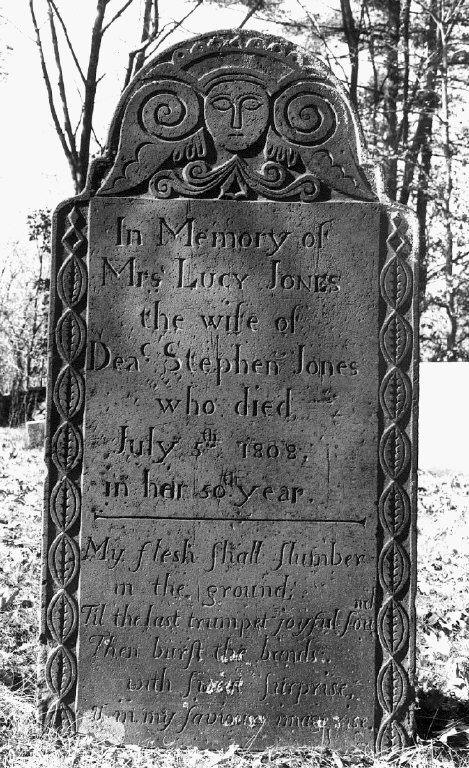 In Memory of
Mrs Lucy Jones
the wife of
Deaᶜ Stephen Jones
who died
July 5th 1808,
in her 50th year.
My flesh ſhall ſlumber
in the ground;
Til the last trumpet joyful ſound
Then burſt the bands
with ſweet ſurprise,
in my saviours image rise.